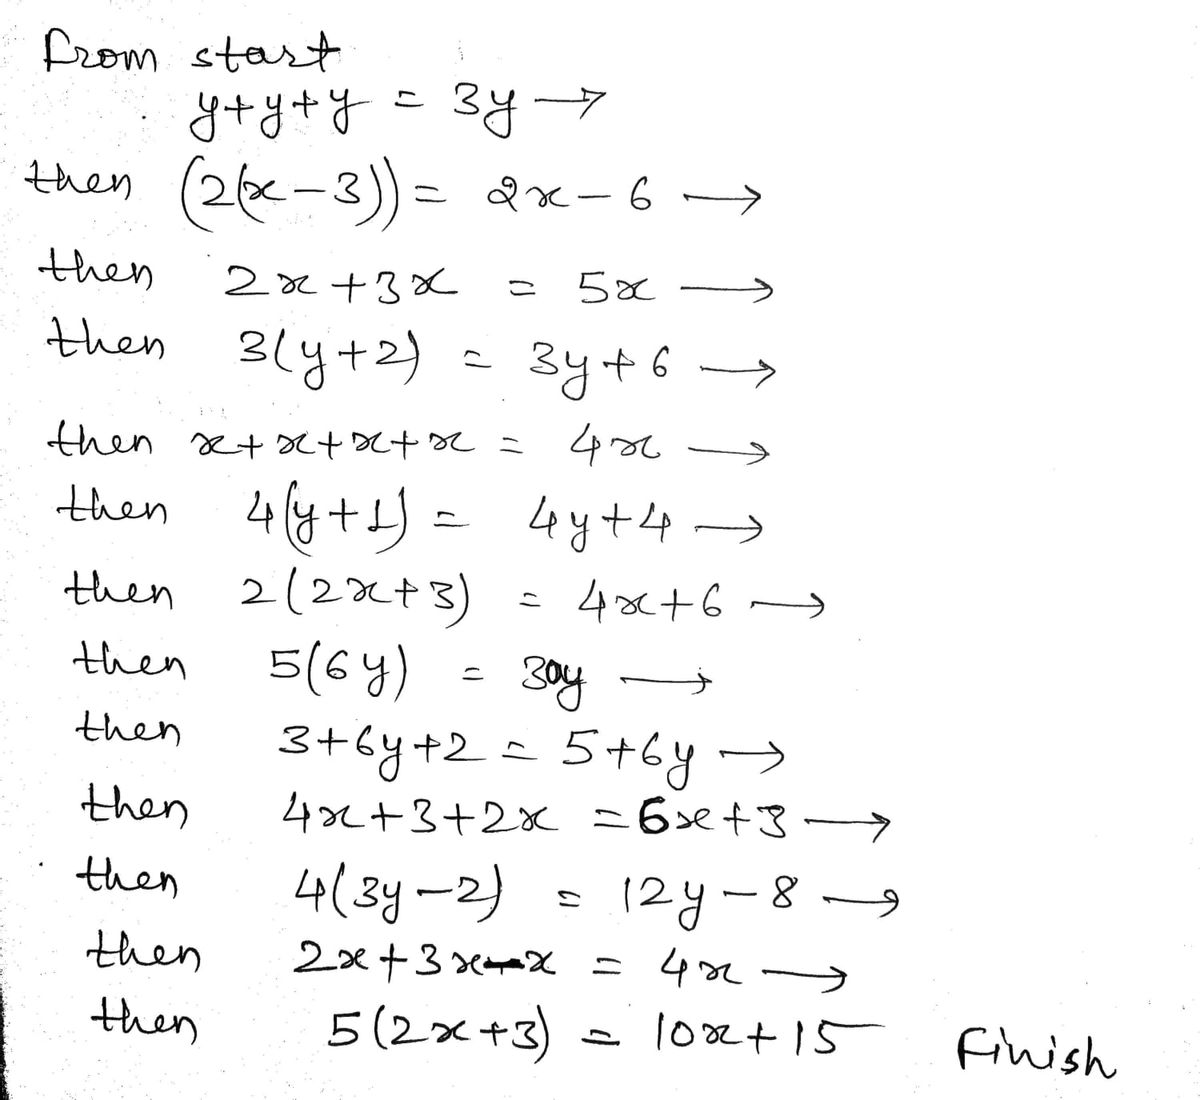 from start
y+y+y = 3y →
then (2(x-3)) = 2x-6 →
then 2x+3x = 5x →
then 3(y+2) = 3y+6 →
then x+x+x+x = 4x →
then 4(y+1) = 4y+4 →
then 2(2x+3) = 4x+6 →
then 5(6y) = 30y →
then 3+6y+2 = 5+6y →
then 4x+3+2x = 6x+3 →
then 4(3y-2) = 12y-8 →
then 2x+3x-x = 4x →
then 5(2x+3) = 10x+15 Finish